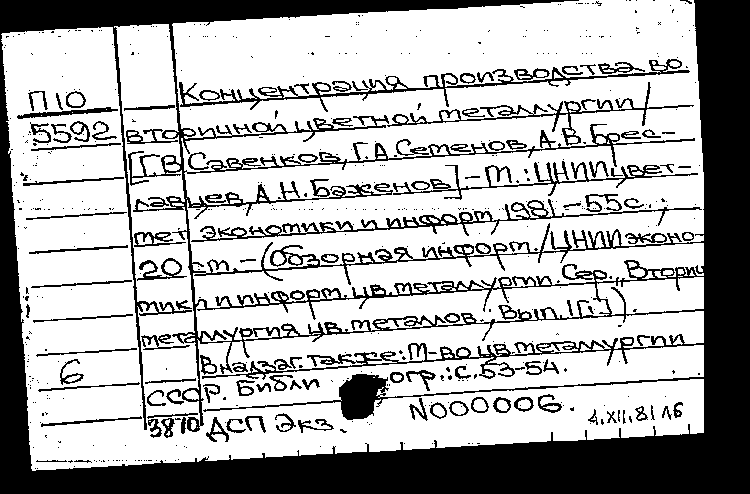 П10 Концентрация производства во
5592 вторичной цветной металлургии /
[Г.В. Савенков, Г.А. Семенов, А.В. Брес-
лавцев, А.Н. Баженов]. - М.: ЦНИИцвет-
мет экономики и информ, 1981. - 55с.;
20 см. - (Обзорная информ. / ЦНИИ эконо-
мики и информ. цв. металлургии. Сер. „Вторич
металлургия цв. металлов.; Вып. 1[1]).
6 В надзаг. также: М-во цв. металлургии
СССР. Библи огр.: с. 53-54.
3870 ДСП Экз. N000006. 4.XII.81